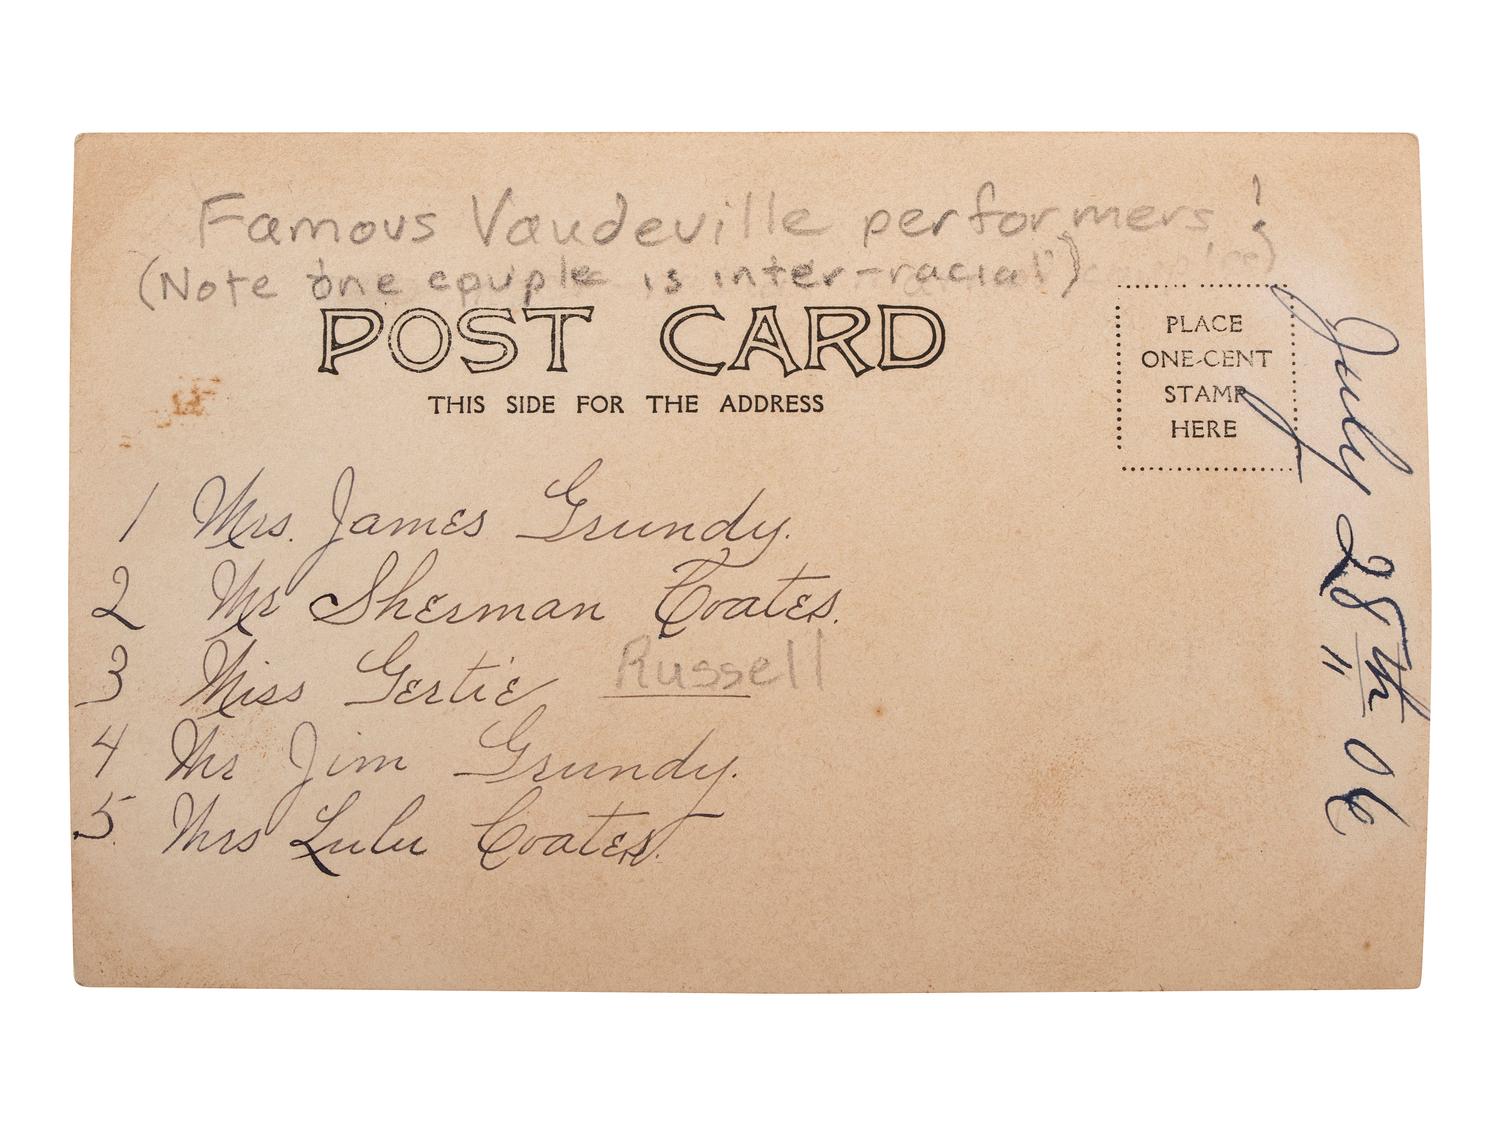 Famous Vaudeville performers!
(Note one couple is inter-racial)
POST CARD
THIS SIDE FOR THE ADDRESS
PLACE
ONE-CENT
STAMP
HERE
July 28th 06
1 Mrs. James Grundy.
2 Mr Sherman Coates.
3 Miss Gertie Russell
4 Mr Jim Grundy.
5. Mrs Lulu Coates.